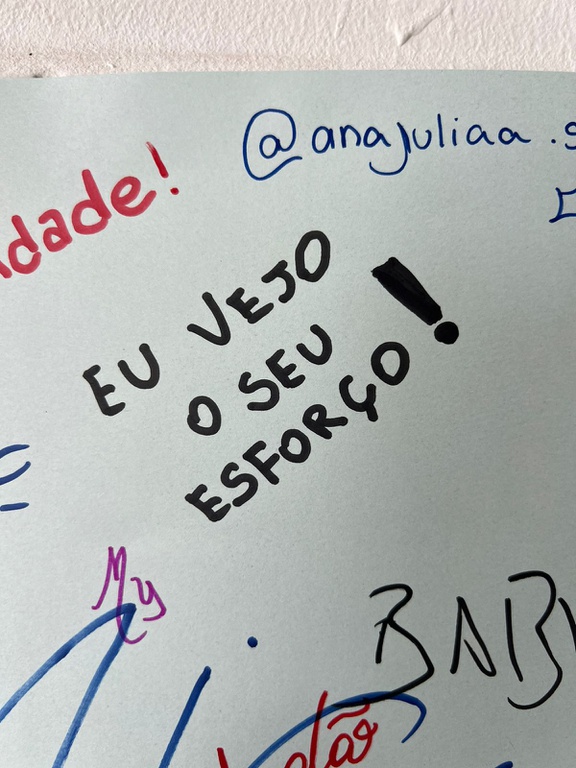 @anajuliaa.s
dade!
EU VEJO
O SEU
ESFORÇO!
My
BAB